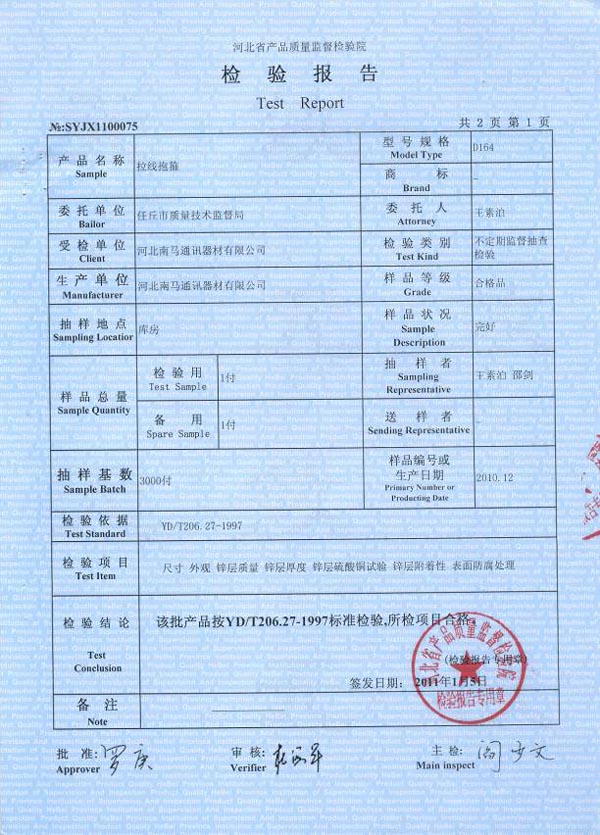 河北省产品质量监督检验院
检 验 报 告
Test Report
№:SYJX1100075
共 2 页 第 1 页
产 品 名 称
Sample
拉线抱箍
型 号 规 格
Model Type
D164
商 标
Brand
-
委 托 单 位
Bailor
任丘市质量技术监督局
委 托 人
Attorney
王素泊
受 检 单 位
Client
河北南马通讯器材有限公司
检 验 类 别
Test Kind
不定期监督抽查
检验
生 产 单 位
Manufacturer
河北南马通讯器材有限公司
样 品 等 级
Grade
合格品
抽 样 地 点
Sampling Location
库房
样 品 状 况
Sample
Description
完好
样 品 总 量
Sample Quantity
检 验 用
Test Sample
1付
抽 样 者
Sampling
Representative
王素泊 邵剑
备 用
Spare Sample
1付
送 样 者
Sending Representative
-
抽 样 基 数
Sample Batch
3000付
样品编号或
生产日期
Primary Number or
Producting Date
2010.12
检 验 依 据
Test Standard
YD/T206.27-1997
检 验 项 目
Test Item
尺寸 外观 锌层质量 锌层厚度 锌层硫酸铜试验 锌层附着性 表面防腐处理
检 验 结 论
Test
Conclusion
该批产品按YD/T206.27-1997标准检验,所检项目合格。
(检验报告专用章)
签发日期: 2011年1月5日
河北省产品质量监督检验院
检验报告专用章
备 注
Note
批 准:
Approver
审 核:
Verifier
主 检:
Main inspect